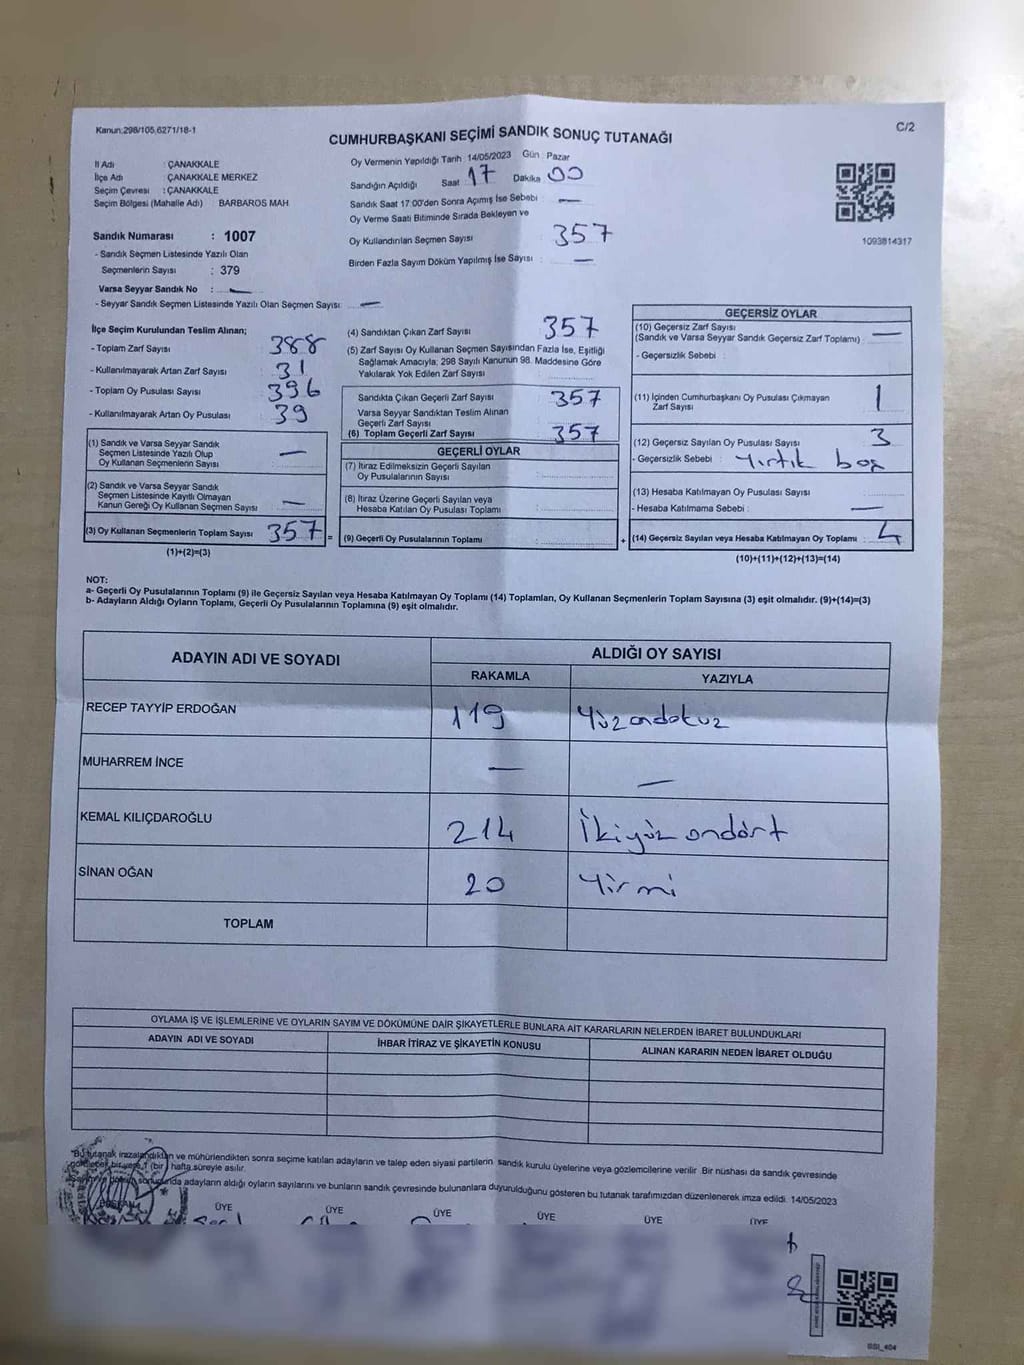 Kanun:298/105,6271/18-1
C/2
CUMHURBAŞKANI SEÇİMİ SANDIK SONUÇ TUTANAĞI
İl Adı : ÇANAKKALE
İlçe Adı : ÇANAKKALE MERKEZ
Seçim Çevresi : ÇANAKKALE
Seçim Bölgesi (Mahalle Adı) : BARBAROS MAH
Sandık Numarası : 1007
- Sandık Seçmen Listesinde Yazılı Olan
Seçmenlerin Sayısı : 379
Varsa Seyyar Sandık No : —
- Seyyar Sandık Seçmen Listesinde Yazılı Olan Seçmen Sayısı: —
Oy Vermenin Yapıldığı Tarih : 14/05/2023 Gün : Pazar
Sandığın Açıldığı Saat 17 Dakika 00
Sandık Saat 17:00'den Sonra Açımış İse Sebebi : —
Oy Verme Saati Bitiminde Sırada Bekleyen ve
Oy Kullandırılan Seçmen Sayısı : 357
Birden Fazla Sayım Döküm Yapılmış İse Sayısı : —
1093814317
İlçe Seçim Kurulundan Teslim Alınan;
- Toplam Zarf Sayısı : 388
- Kullanılmayarak Artan Zarf Sayısı : 31
- Toplam Oy Pusulası Sayısı : 396
- Kullanılmayarak Artan Oy Pusulası : 39
(1) Sandık ve Varsa Seyyar Sandık
Seçmen Listesinde Yazılı Olup
Oy Kullanan Seçmenlerin Sayısı : —
(2) Sandık ve Varsa Seyyar Sandık
Seçmen Listesinde Kayıtlı Olmayan
Kanun Gereği Oy Kullanan Seçmen Sayısı : —
(3) Oy Kullanan Seçmenlerin Toplam Sayısı : 357 =
(1)+(2)=(3)
(4) Sandıktan Çıkan Zarf Sayısı : 357
(5) Zarf Sayısı Oy Kullanan Seçmen Sayısından Fazla İse, Eşitliği
Sağlamak Amacıyla; 298 Sayılı Kanunun 98. Maddesine Göre
Yakılarak Yok Edilen Zarf Sayısı :
Sandıkta Çıkan Geçerli Zarf Sayısı : 357
Varsa Seyyar Sandıktan Teslim Alınan
Geçerli Zarf Sayısı :
(6) Toplam Geçerli Zarf Sayısı : 357
GEÇERLİ OYLAR
(7) İtiraz Edilmeksizin Geçerli Sayılan
Oy Pusulalarının Sayısı :
(8) İtiraz Üzerine Geçerli Sayılan veya
Hesaba Katılan Oy Pusulası Toplamı :
(9) Geçerli Oy Pusulalarının Toplamı : +
GEÇERSİZ OYLAR
(10) Geçersiz Zarf Sayısı
(Sandık ve Varsa Seyyar Sandık Geçersiz Zarf Toplamı) : —
- Geçersizlik Sebebi :
(11) İçinden Cumhurbaşkanı Oy Pusulası Çıkmayan
Zarf Sayısı : 1
(12) Geçersiz Sayılan Oy Pusulası Sayısı : 3
- Geçersizlik Sebebi : Yırtık boş
(13) Hesaba Katılmayan Oy Pusulası Sayısı :
- Hesaba Katılmama Sebebi : —
(14) Geçersiz Sayılan veya Hesaba Katılmayan Oy Toplamı : 4
(10)+(11)+(12)+(13)=(14)
NOT:
a- Geçerli Oy Pusulalarının Toplamı (9) ile Geçersiz Sayılan veya Hesaba Katılmayan Oy Toplamı (14) Toplamları, Oy Kullanan Seçmenlerin Toplam Sayısına (3) eşit olmalıdır. (9)+(14)=(3)
b- Adayların Aldığı Oyların Toplamı, Geçerli Oy Pusulalarının Toplamına (9) eşit olmalıdır.
ADAYIN ADI VE SOYADI
ALDIĞI OY SAYISI
RAKAMLA YAZIYLA
RECEP TAYYİP ERDOĞAN 119 Yüzondokuz
MUHARREM İNCE — —
KEMAL KILIÇDAROĞLU 214 İkiyüz ondört
SİNAN OĞAN 20 Yirmi
TOPLAM
OYLAMA İŞ VE İŞLEMLERİNE VE OYLARIN SAYIM VE DÖKÜMÜNE DAİR ŞİKAYETLERLE BUNLARA AİT KARARLARIN NELERDEN İBARET BULUNDUKLARI
ADAYIN ADI VE SOYADI İHBAR İTİRAZ VE ŞİKAYETİN KONUSU ALINAN KARARIN NEDEN İBARET OLDUĞU
"Bu tutanak imzalandıktan ve mühürlendikten sonra seçime katılan adayların ve talep eden siyasi partilerin sandık kurulu üyelerine veya gözlemcilerine verilir. Bir nüshası da sandık çevresinde
görülecek bir yere 1 (bir) hafta süreyle asılır.
adayların aldığı oyların sayılarını ve bunların sandık çevresinde bulunanlara duyurulduğunu gösteren bu tutanak tarafımızdan düzenlenerek imza edildi. 14/05/2023
BAŞKAN ÜYE ÜYE ÜYE ÜYE ÜYE ÜYE
SSI_404